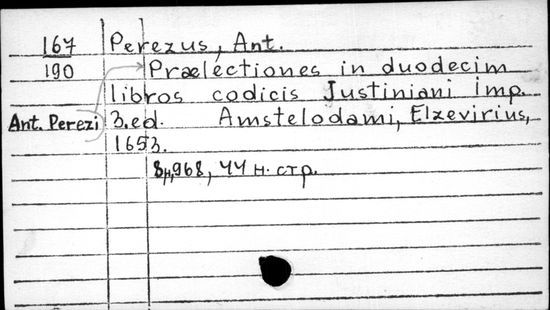 167 Perezus, Ant.
190 Prælectiones in duodecim
libros codicis Justiniani imp.
Ant. Perezi 3. ed. Amstelodami, Elzevirius,
1653.
8н, 968, 44 н. стр.